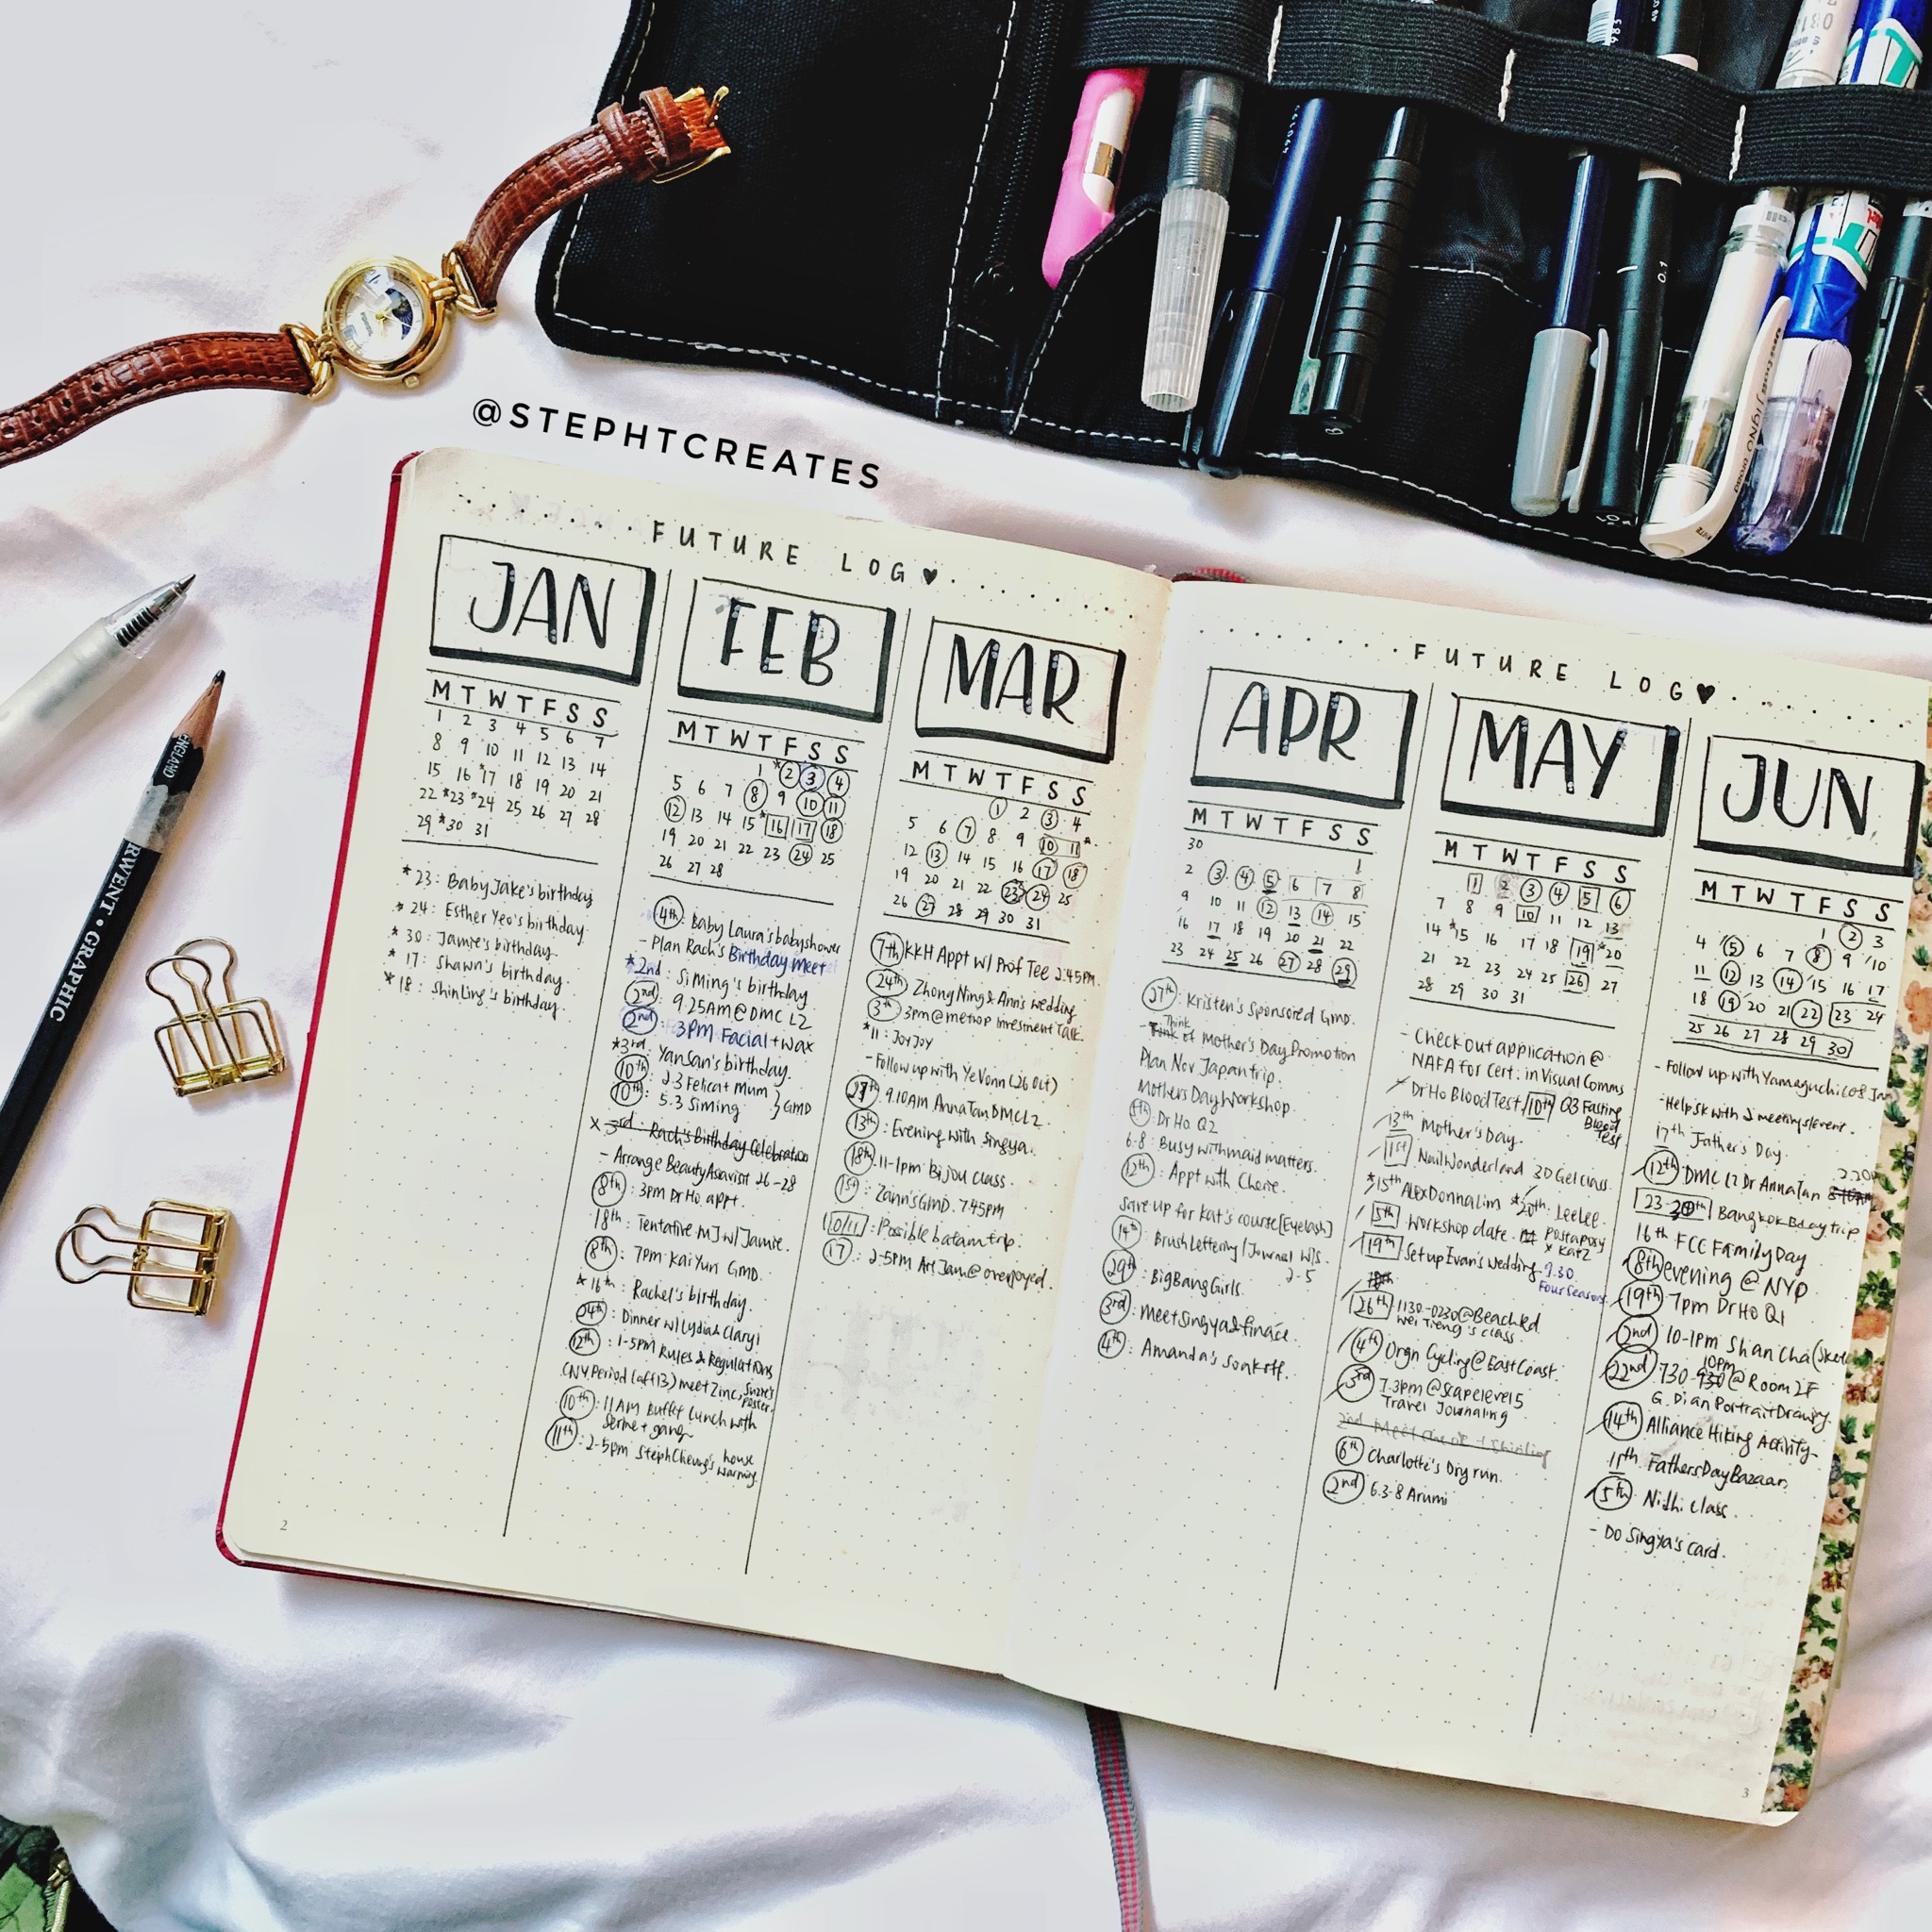 @STEPHTCREATES
FUTURE LOG
JAN
M T W T F S S
1 2 3 4 5 6 7
8 9 10 11 12 13 14
15 16 *17 18 19 20 21
22 *23 *24 25 26 27 28
29 *30 31
*23: Baby Jake's birthday
*24: Esther Yeo's birthday.
*30: Jamie's birthday.
*17: Shawn's birthday.
*18: ShinLing's birthday.
2
FEB
M T W T F S S
1 *2 3 4
5 6 7 8 9 10 11
12 13 14 15 *16 17 18
19 20 21 22 23 24 25
26 27 28
4th: Baby Laura's babyshower
- Plan Rach's Birthday Meet
*2nd: SiMing's birthday
2nd: 9.25AM@DMC L2
2nd: 3PM Facial + wax
*3rd: YanSan's birthday.
10th: 2.3 Felicat Mum
10th: 5.3 Siming } GMD
x 3rd: Rach's Birthday Celebration
- Arrange 26-28
8th: 3pm Dr Ho appt.
18th: Tentative MJ w/ Jamie.
8th: 7pm KaiYun GMD.
*16th: Rachel's birthday.
24th: Dinner w/ Lydia & Claryl
12th: 1-5pm Rules & Regulations
CNY Period (aft 13) meet Zinc, poster.
10th: 11AM Buffet Lunch with
gang
11th: 2-5pm StephCheung's house
warming.
MAR
M T W T F S S
1 2 3 4
5 6 7 8 9 10 11*
12 13 14 15 16 17 18
19 20 21 22 23 24 25
26 27 28 29 30 31
7th KKH Appt w/ Prof Tee 2.45PM.
24th: ZhongNing & Ann's wedding
3th: 3pm@metrop Investment Talk.
*11: JoyJoy
- Follow up with YeVonn (26 Oct)
27th: 9.10AM AnnaTan DMC L2.
13th: Evening with Singya.
18th: 11-1pm Bijou class.
1st: Zann's GMD. 7.45PM
10/11: Possible batam trip.
17: 2-5PM Art Jam @ overjoyed.
FUTURE LOG
APR
M T W T F S S
30 1
2 3 4 5 6 7 8
9 10 11 12 13 14 15
16 17 18 19 20 21 22
23 24 25 26 27 28 29
: Kristen's Sponsored GMD.
- Think of Mother's Day Promotion
Plan Nov Japan trip.
Mothers Day Workshop.
5th: Dr Ho Q2
6-8: Busy with maid matters.
12th: Appt with Cherie.
Save up for Kat's course [Eyelash]
14th: Brush Lettering / Journal W/S.
2-5
29th: BigBangGirls.
3rd: Meet Singya & finace.
4th: Amanda's soakoff.
MAY
M T W T F S S
1 2 3 4 5 6
7 8 9 10 11 12 13
14 *15 16 17 18 19 *20
21 22 23 24 25 26 27
28 29 30 31
- Check out application @
NAFA for Cert. in Visual Comms
Dr Ho Blood Test 10th Q3 Fasting
Blood
Test
13th Mother's Day.
1st NailWonderland 3D Gel class.
*15th Alex Donna Lim *20th. LeeLee.
5th workshop date.
x Katz
19th Set up Evan's wedding 9.30
Four Seasons
26th 1130-0230@Beach Rd
Wei Tieng's class
4th Orgn Cycling@EastCoast.
3rd 7.3pm@scapelevel5
Travel Journaling
6th Charlotte's Dry run.
2nd 6.3-8 Arumi
JUN
M T W T F S S
1 2 3
4 5 6 7 8 9 10
11 12 13 14 15 16 17
18 19 20 21 22 23 24
25 26 27 28 29 30
- Follow up with Yamaguchi
- Help SK with J meetings/event.
17th Father's Day.
12th DMC L2 Dr AnnaTan
23-20th Bangkok Bday trip
16th FCC Family Day
8th evening @ NYP
19th 7pm Dr Ho Q1
2nd 10-1pm Shan Cha
22nd 730-930 10pm @Room 2F
G. Dian Portrait Drawing.
14th Alliance Hiking Activity-
Fathers Day Bazaar
5th Nidhi class
- Do Singya's card.
3
DERWENT • GRAPHIC
ENGLAND
uni-ball SIGNO broad
0.1